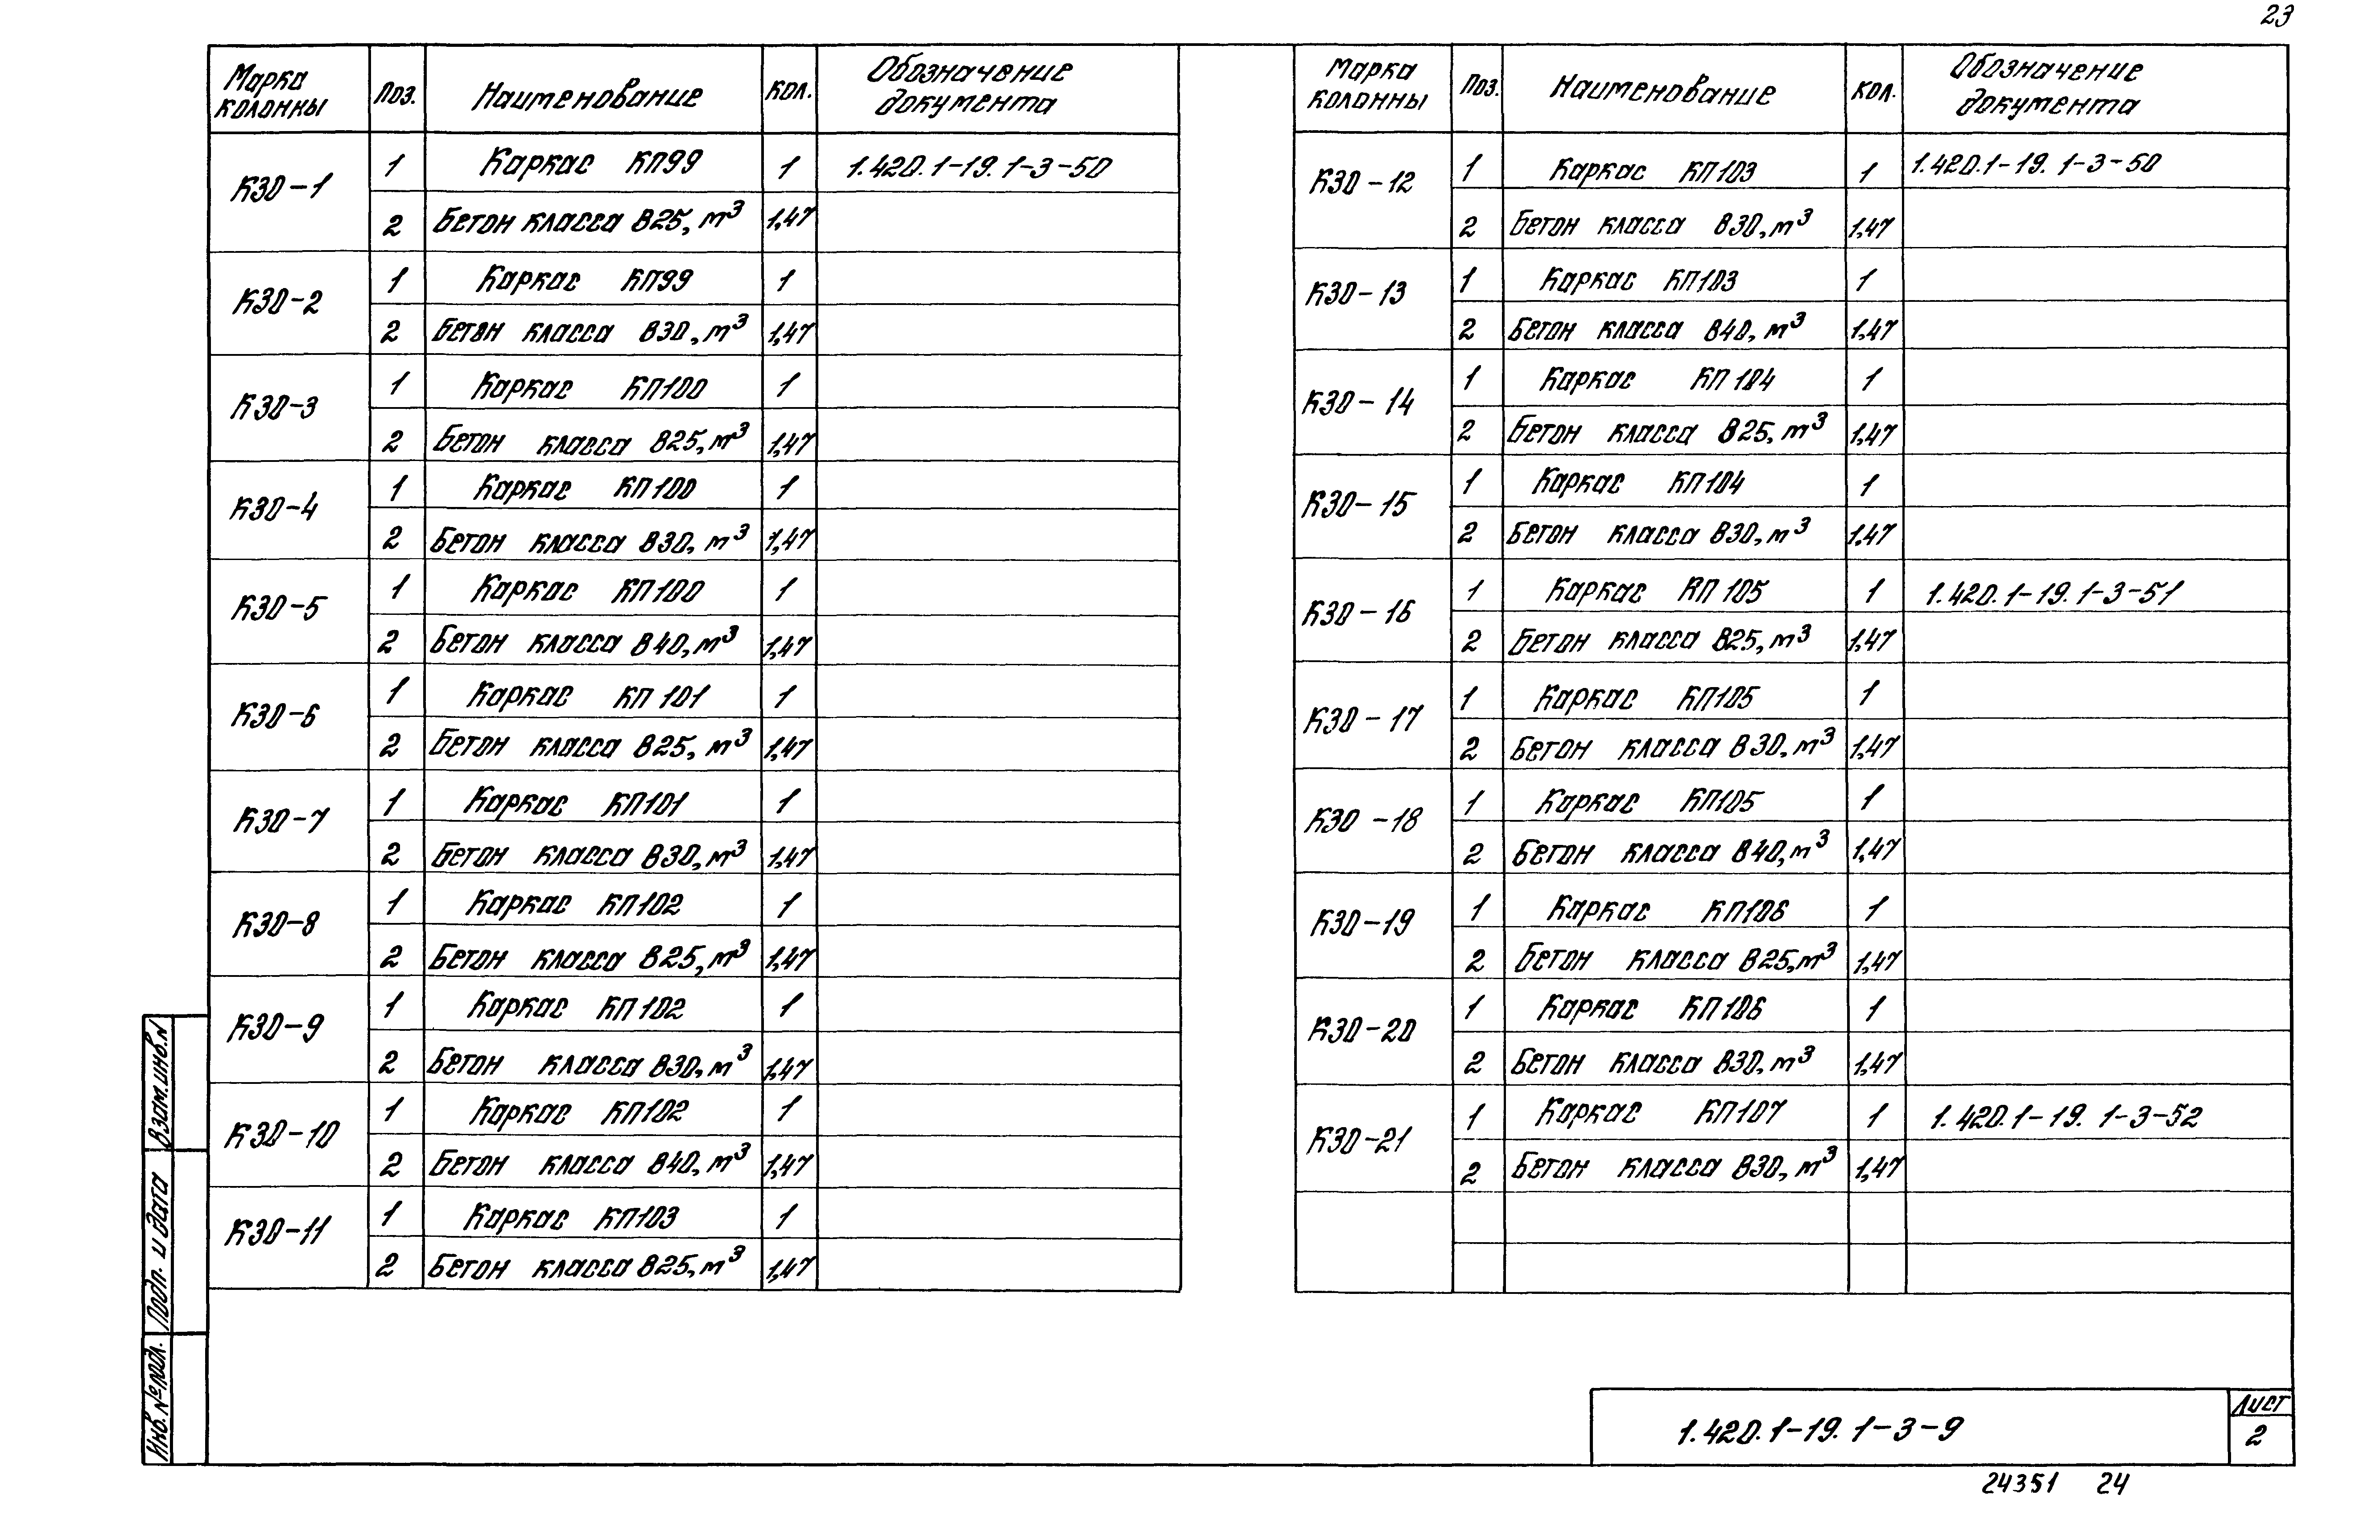 23
Марка колонны Поз. Наименование Кол. Обозначение документа
К30-1 1 Каркас КП99 1 1.420.1-19.1-3-50
2 Бетон класса В25, м³ 1,47
К30-2 1 Каркас КП99 1
2 Бетон класса В30, м³ 1,47
К30-3 1 Каркас КП100 1
2 Бетон класса В25, м³ 1,47
К30-4 1 Каркас КП100 1
2 Бетон класса В30, м³ 1,47
К30-5 1 Каркас КП100 1
2 Бетон класса В40, м³ 1,47
К30-6 1 Каркас КП101 1
2 Бетон класса В25, м³ 1,47
К30-7 1 Каркас КП101 1
2 Бетон класса В30, м³ 1,47
К30-8 1 Каркас КП102 1
2 Бетон класса В25, м³ 1,47
К30-9 1 Каркас КП102 1
2 Бетон класса В30, м³ 1,47
К30-10 1 Каркас КП102 1
2 Бетон класса В40, м³ 1,47
К30-11 1 Каркас КП103 1
2 Бетон класса В25, м³ 1,47
Марка колонны Поз. Наименование Кол. Обозначение документа
К30-12 1 Каркас КП103 1 1.420.1-19.1-3-50
2 Бетон класса В30, м³ 1,47
К30-13 1 Каркас КП103 1
2 Бетон класса В40, м³ 1,47
К30-14 1 Каркас КП104 1
2 Бетон класса В25, м³ 1,47
К30-15 1 Каркас КП104 1
2 Бетон класса В30, м³ 1,47
К30-16 1 Каркас КП105 1 1.420.1-19.1-3-51
2 Бетон класса В25, м³ 1,47
К30-17 1 Каркас КП105 1
2 Бетон класса В30, м³ 1,47
К30-18 1 Каркас КП105 1
2 Бетон класса В40, м³ 1,47
К30-19 1 Каркас КП106 1
2 Бетон класса В25, м³ 1,47
К30-20 1 Каркас КП106 1
2 Бетон класса В30, м³ 1,47
К30-21 1 Каркас КП107 1 1.420.1-19.1-3-52
2 Бетон класса В30, м³ 1,47
Взам.инв.N
Подп. и дата
Инв.№подл.
1.420.1-19.1-3-9
Лист
2
24351 24